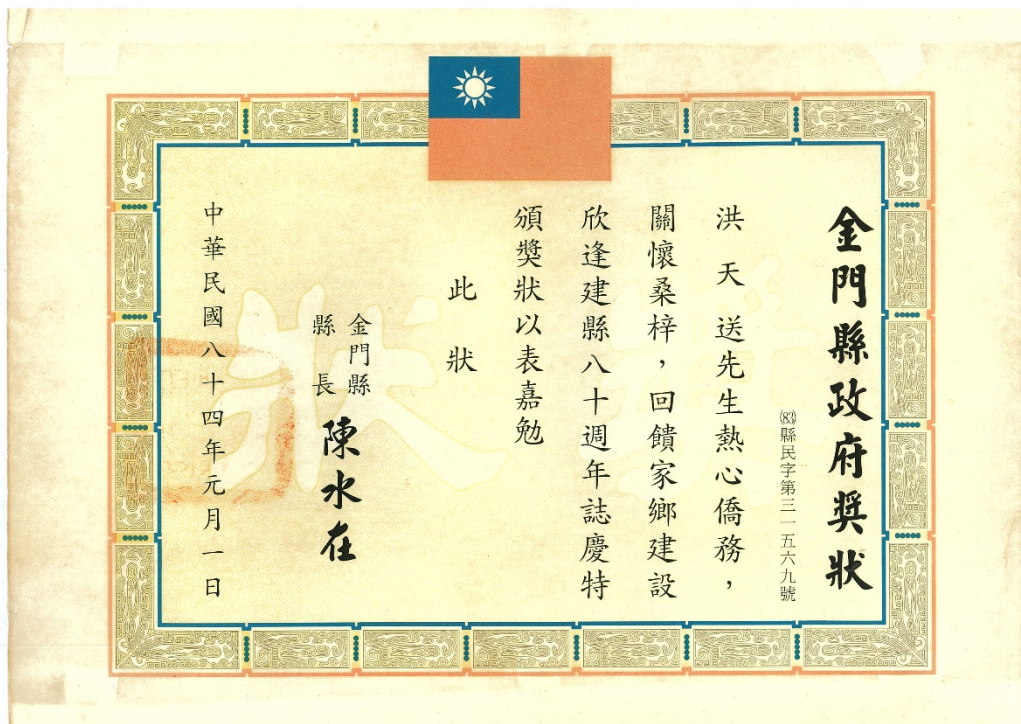 金門縣政府獎狀
(83)縣民字第三一五六九號
洪天送先生熱心僑務，
關懷桑梓，回饋家鄉建設
欣逢建縣八十週年誌慶特
頒獎狀以表嘉勉
此狀
金門縣
縣長 陳水在
中華民國八十四年元月一日
獎狀